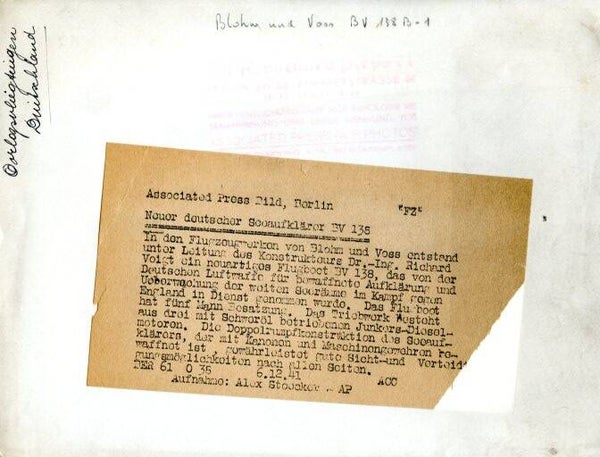 Blohm und Voss BV 138 B-1
Oorlogsvliegtuigen
Duitschland
Associated Press Bild, Berlin "FZ"
Neuer deutscher Seeaufklärer BV 138
In den Flugzeugwerken von Blohm und Voss entstand
unter Leitung des Konstrukteurs Dr.-Ing. Richard
Vogt ein neuartiges Flugboot BV 138, das von der
Deutschen Luftwaffe für bewaffnete Aufklärung und
Ueberwachung der weiten Seeräume im Kampf gegen
England in Dienst genommen wurde. Das Flugboot
hat fünf Mann Besatzung. Das Triebwerk besteht
aus drei mit Schweröl betriebenen Junkers-Diesel-
motoren. Die Doppelrumpfkonstruktion des Seeauf-
klärers, der mit Kanonen und Maschinengewehren be-
waffnet ist, gewährleistet gute Sicht-und Verteidi
gungsmöglichkeiten nach allen Seiten.
DER 61 0 35 6.12.41 ACC
Aufnahme: Alex Stoecker - AP